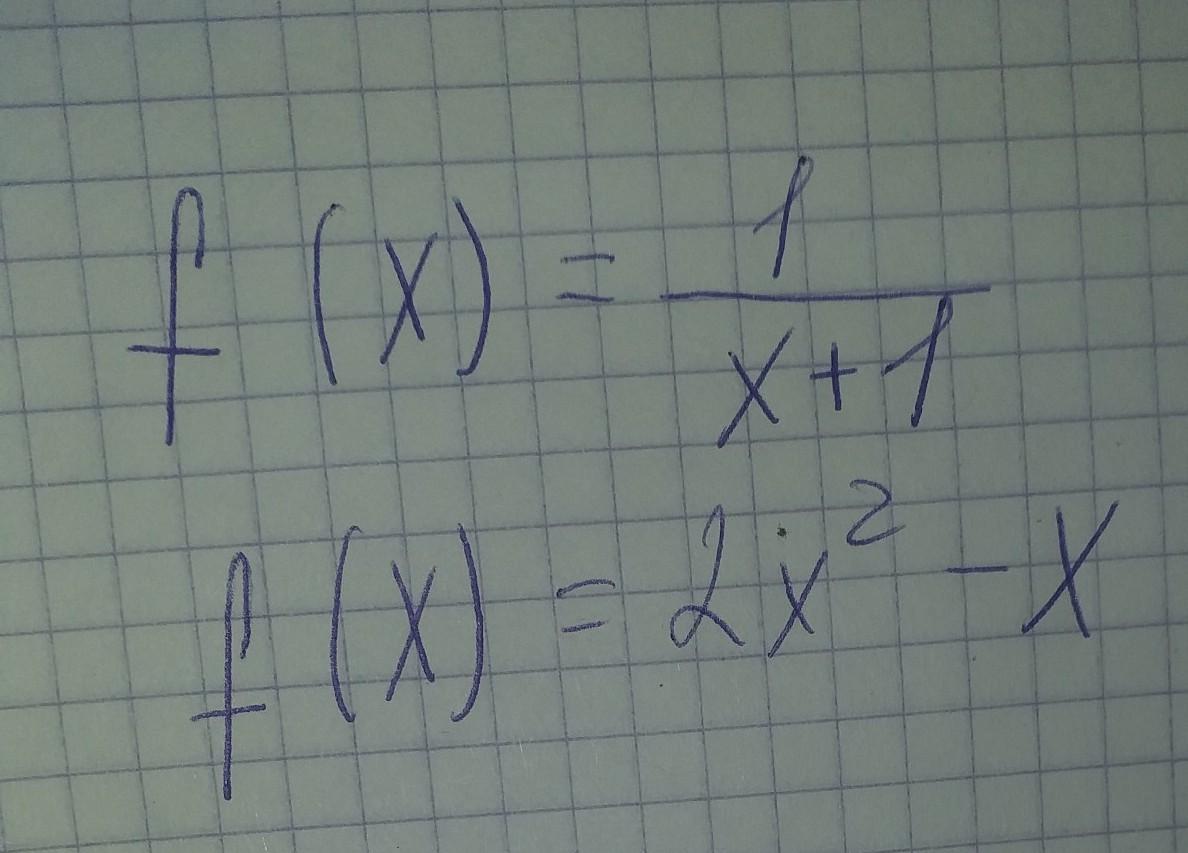 f(x) = 1/(x+1)
f(x) = 2x² - x